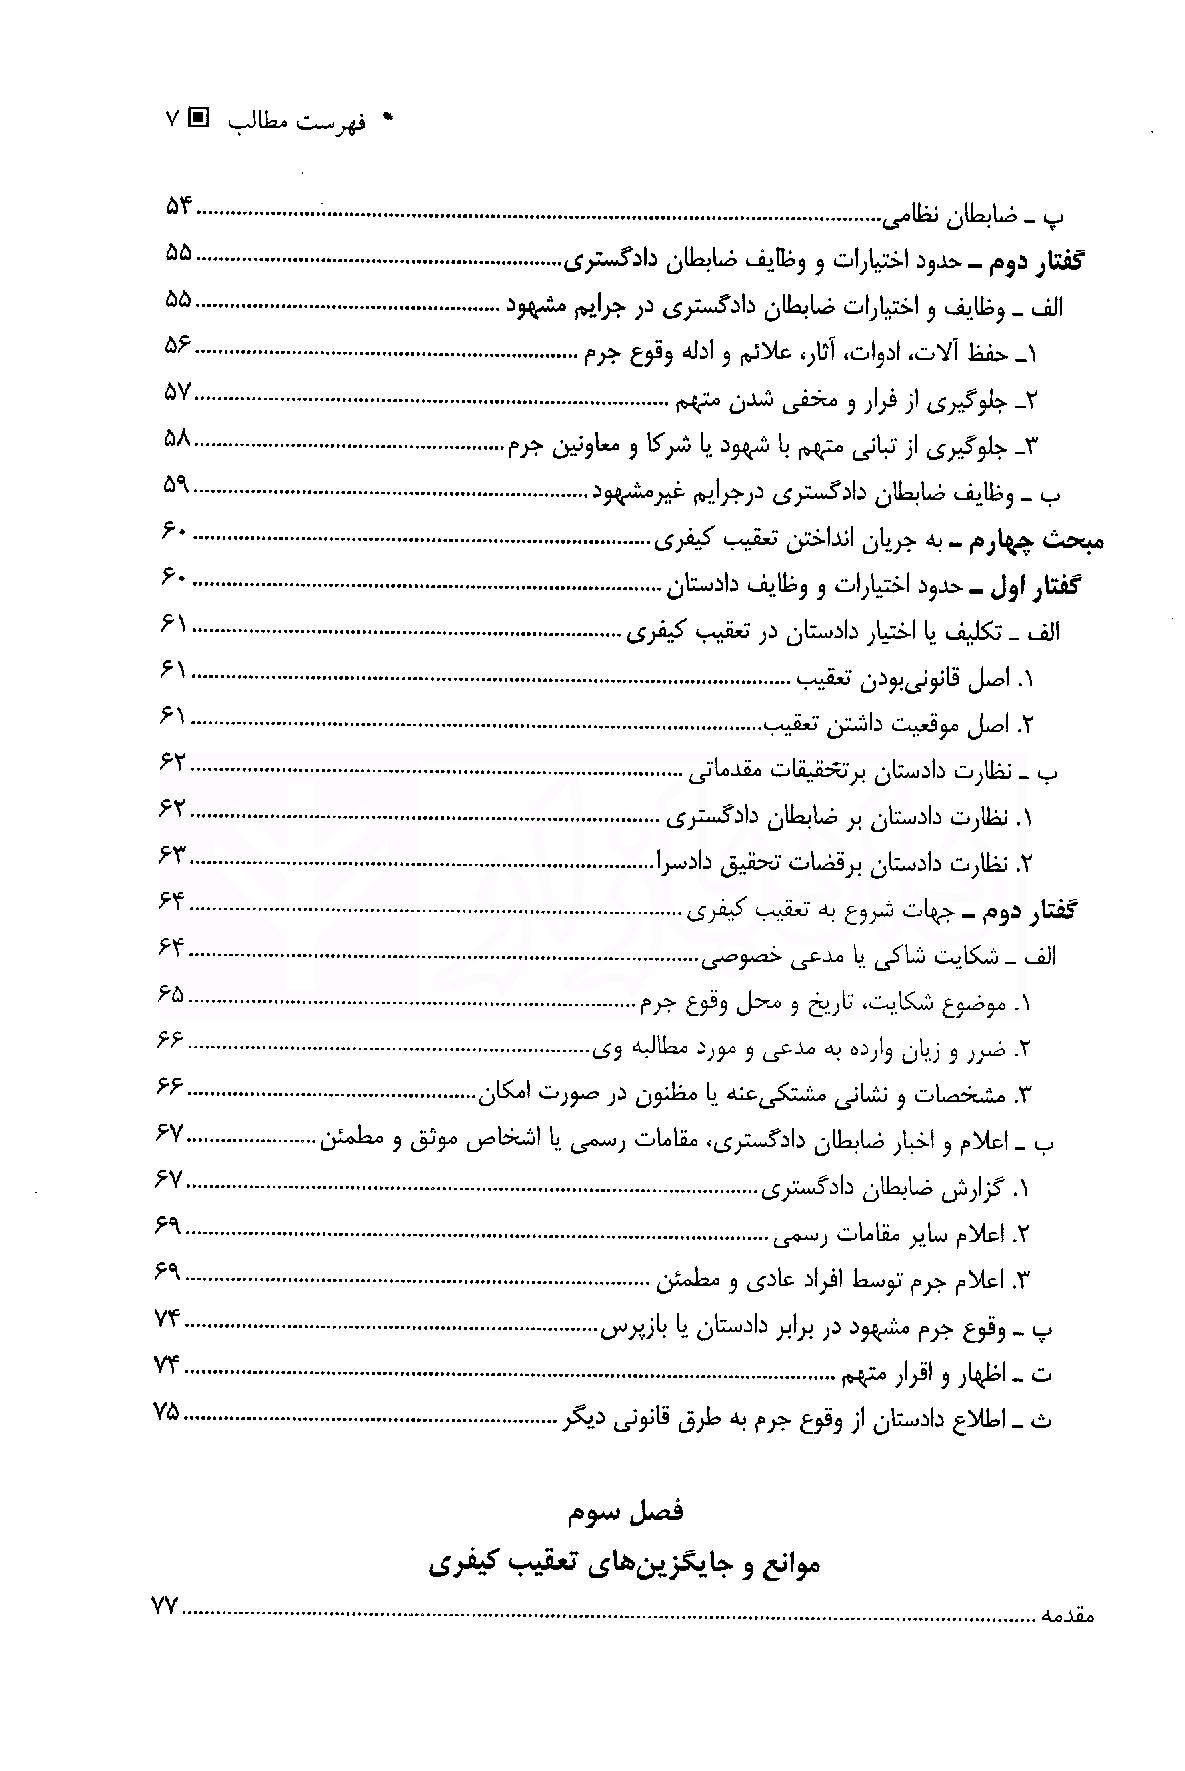 * فهرست مطالب ▣ ۷
پ ـ ضابطان نظامی ........ ۵۴
گفتار دوم ـ حدود اختیارات و وظایف ضابطان دادگستری ........ ۵۵
الف ـ وظایف و اختیارات ضابطان دادگستری در جرایم مشهود ........ ۵۵
۱ـ حفظ آلات، ادوات، آثار، علائم و ادله وقوع جرم ........ ۵۶
۲ـ جلوگیری از فرار و مخفی شدن متهم ........ ۵۷
۳ـ جلوگیری از تبانی متهم با شهود یا شرکا و معاونین جرم ........ ۵۸
ب ـ وظایف ضابطان دادگستری درجرایم غیرمشهود ........ ۵۹
مبحث چهارم ـ به جریان انداختن تعقیب کیفری ........ ۶۰
گفتار اول ـ حدود اختیارات و وظایف دادستان ........ ۶۰
الف ـ تکلیف یا اختیار دادستان در تعقیب کیفری ........ ۶۱
۱. اصل قانونی‌بودن تعقیب ........ ۶۱
۲. اصل موقعیت داشتن تعقیب ........ ۶۱
ب ـ نظارت دادستان برتحقیقات مقدماتی ........ ۶۲
۱. نظارت دادستان بر ضابطان دادگستری ........ ۶۲
۲. نظارت دادستان برقضات تحقیق دادسرا ........ ۶۳
گفتار دوم ـ جهات شروع به تعقیب کیفری ........ ۶۴
الف ـ شکایت شاکی یا مدعی خصوصی ........ ۶۴
۱. موضوع شکایت، تاریخ و محل وقوع جرم ........ ۶۵
۲. ضرر و زیان وارده به مدعی و مورد مطالبه وی ........ ۶۶
۳. مشخصات و نشانی مشتکی‌عنه یا مظنون در صورت امکان ........ ۶۶
ب ـ اعلام و اخبار ضابطان دادگستری، مقامات رسمی یا اشخاص موثق و مطمئن ........ ۶۷
۱. گزارش ضابطان دادگستری ........ ۶۷
۲. اعلام سایر مقامات رسمی ........ ۶۹
۳. اعلام جرم توسط افراد عادی و مطمئن ........ ۶۹
پ ـ وقوع جرم مشهود در برابر دادستان یا بازپرس ........ ۷۴
ت ـ اظهار و اقرار متهم ........ ۷۴
ث ـ اطلاع دادستان از وقوع جرم به طرق قانونی دیگر ........ ۷۵
فصل سوم
موانع و جایگزین‌های تعقیب کیفری
مقدمه ........ ۷۷